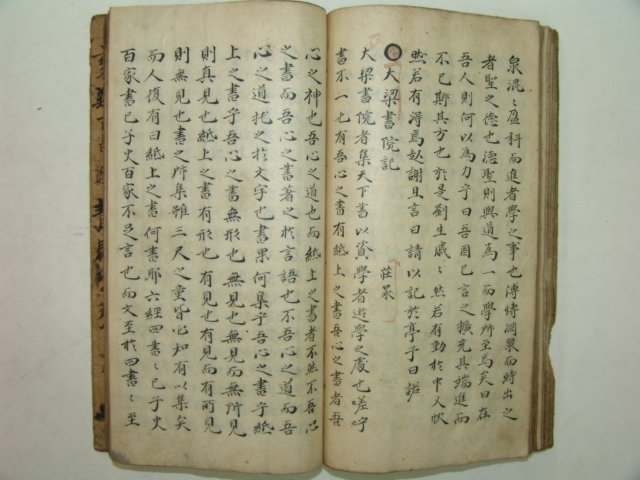 泉混〻盈科而進者學之事也溥博淵泉而時出之
者聖之德也德聖則與道爲一而學所至焉矣曰在
吾人則何以爲力乎曰吾固已言之擴充其端進而
不已斯其方也於是劉生戚〻然若有動於中人默
然若有得焉起謝且言曰請以記於亭予曰諾
大梁書院記
莊㫤
大梁書院者集天下書以資學者遊學之處也嗟呼
書不一也有吾心之書有紙上之書吾心之書者吾
心之神也吾心之道也而紙上之書者不然不吾以
之書而吾心之書著之於言語也不吾心之道而吾
心之道托之於文字也書果何集乎吾心之書乎紙
上之書乎吾心之書無形也無見也無見而無所見
則真見也紙上之書有形也有見也有見而有所見
則無見也書之所集雖三尺之童皆知有以集矣
而人復有曰紙上之書何書耶六經四書〻已子史
百家書已子史百家不足言也而文至於四書〻至